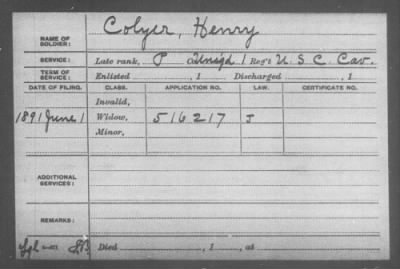 NAME OF SOLDIER: Colyer, Henry
SERVICE: Late rank, P Co. Unsigd 1 Reg't U. S. C. Cav.
TERM OF SERVICE: Enlisted , 1 Discharged , 1
DATE OF FILING. CLASS. APPLICATION NO. LAW. CERTIFICATE NO.
Invalid,
1891 June 1 Widow, 516217 J
Minor,
ADDITIONAL SERVICES:
REMARKS:
Died , 1 , at